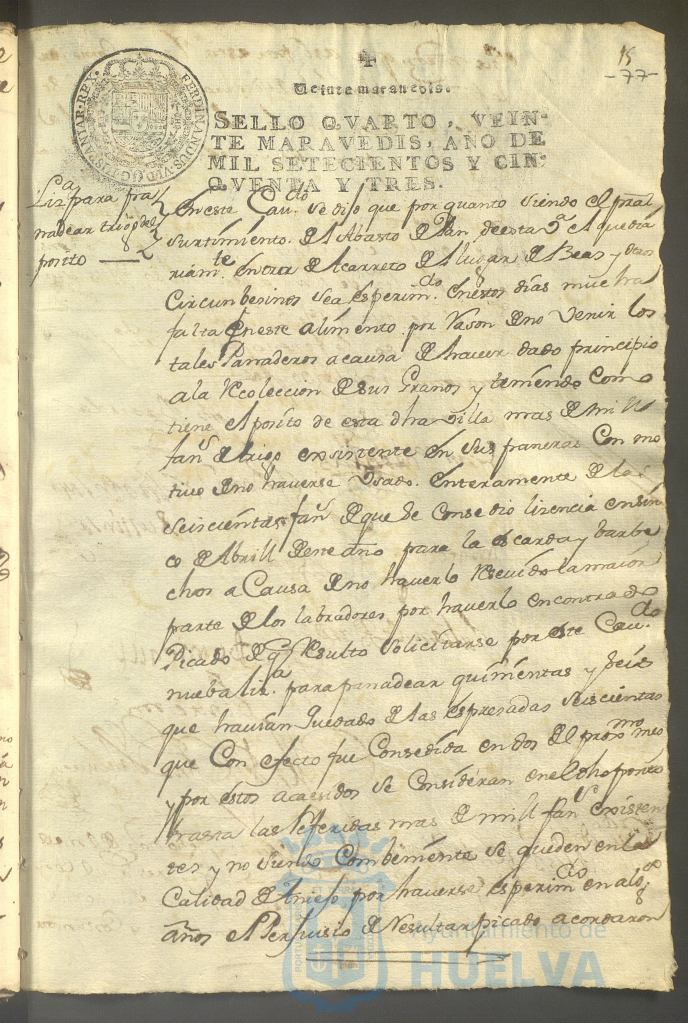 15
-77-
✝
Veinte maravedis.
FERDINANDUS.VI.D.G.HISPANIAR.REX.
SELLO QVARTO, VEIN-
TE MARAVEDIS, AÑO DE
MIL SETECIENTOS Y CIN-
QVENTA Y TRES.
Liza para pa
nadear trigo del
posito
En este Cavdo se dijo que por quanto siendo el pral
surtimiento del Abasto de Pan de esta Va el que dia
riamte entra de Acarreto del lugar de Beas y otros
Circunbesinos sea esperimdo en estos dias mucha
falta en este alimento por rason de no venir los
tales Panaderos a causa de haver dado principio
a la Recoleccion de sus Granos y teniendo como
tiene el posito de esta dha villa mas de mill
fans de trigo existente en sus paneras con mo
tivo de no haverse usado enteramente de las
seiscientas fans de que se consedio lizencia en sin
co de Abrill de este año para la escarda y barbe
chos a Causa de no haverlo Resevido la maior
parte de los labradores por haverlo encontrado
Picado de que Resulto solicitarse por este Cavdo
nueba liza para panadear quinientas y seis
que havian quedado de las espresadas seiscientas
que con efecto fue consedida en dos del proxmo mes
y por estos acaesidos se consideran en el dho posito
hasta las Referidas mas de mill fans existen
tes y no siendo combeniente se queden en la
Calidad de Anejo por haverse esperimdo en algos
años el Perjuisio de Resultar picado acordaron
Ayuntamiento de
HUELVA